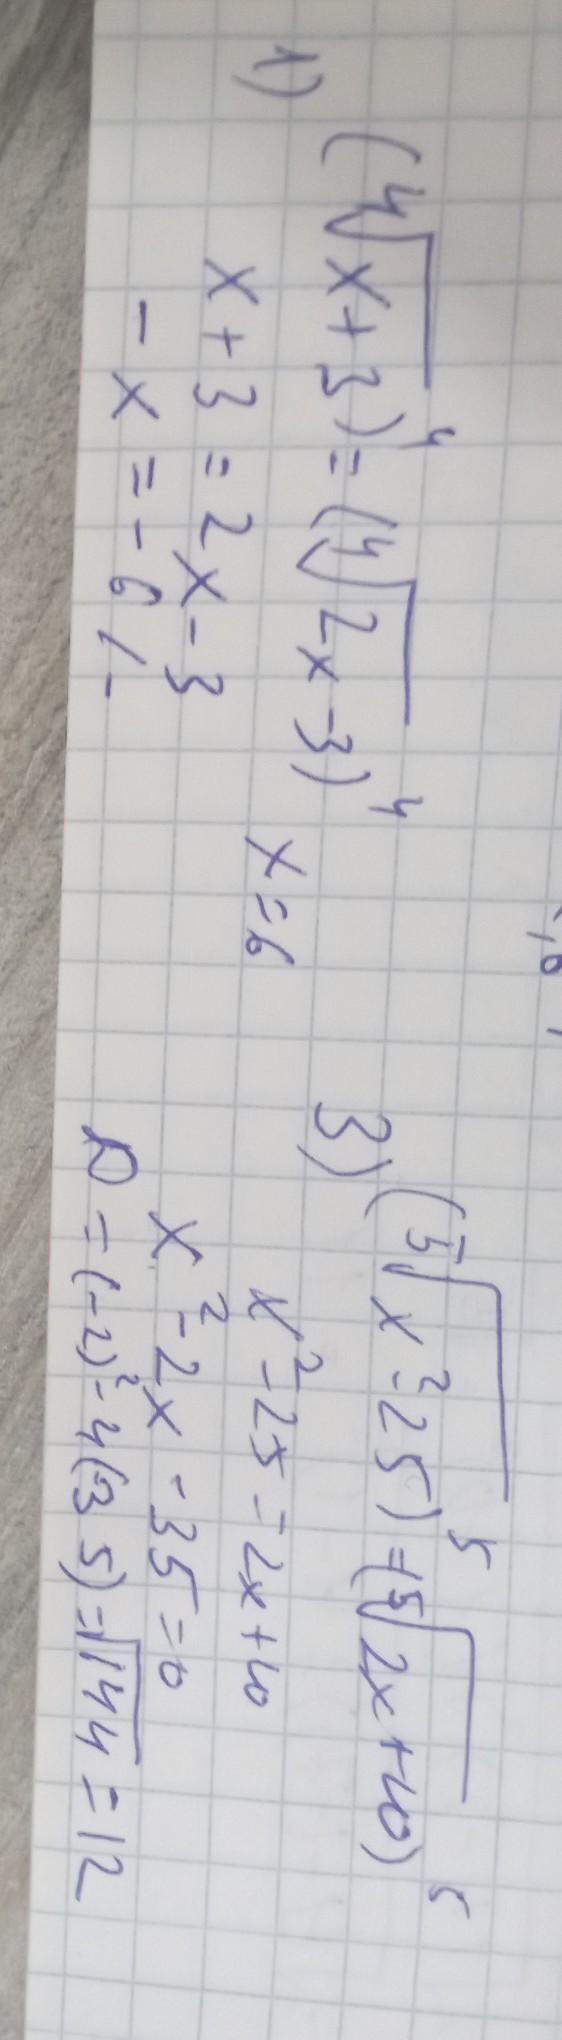 1) (⁴√x+3)⁴ = (⁴√2x-3)⁴
x+3 = 2x-3
-x = -6 /-
x = 6
3) (⁵√x²-25)⁵ = (⁵√2x+10)⁵
x²-25 = 2x+10
x²-2x-35 = 0
D = (-2)²-4(-35) = √144 = 12